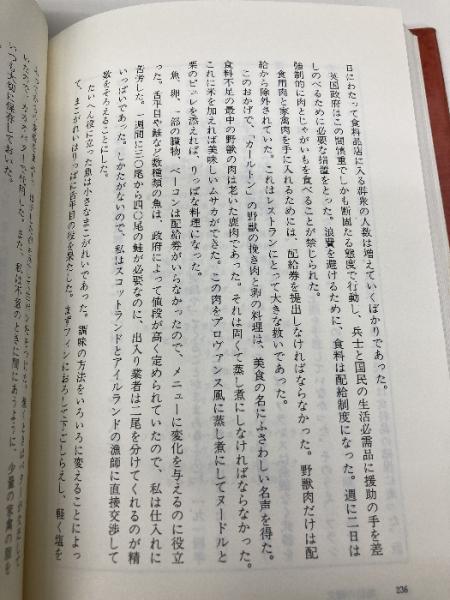 日にわたって食料品店に入る群衆の人数は増えていくばかりであった。
英国政府はこの間慎重でしかも断固たる態度で行動し、兵士と国民の生活必需品に援助の手を差
しのべるために必要な措置をとった。浪費を避けるために、食料は配給制度になった。週に二日は
強制的に肉とじゃがいもを食べることが禁じられた。
食用肉と家禽肉を手に入れるためには、配給券を提出しなければならなかった。野獣肉だけは配
給から除外されていた。これはレストランにとって大きな救いであった。
このおかげで、「カールトン」の野獣の挽き肉と卵の料理は、美食の名にふさわしい名声を得た。
食料不足の最中の野獣の肉は老いた鹿肉であった。それは固くて蒸し煮にしなければならなかった。
これに米を加えれば美味しいムサカができた。この肉をプロヴァンス風に蒸し煮にしてヌードルと
栗のピュレを添えれば、りっぱな料理になった。
魚、卵、一部の臓物、ベーコンは配給券がいらなかったので、メニューに変化を与えるのに役立
った。舌平目や鮭など数種類の魚は、政府によって値段が高く定められていたので、私は仕入れに
苦労した。一週間に三〇尾から四〇尾の鮭が必要なのに、出入り業者は二尾を分けてくれるのが精
いっぱいであった。しかたがないので、私はスコットランドとアイルランドの漁師に直接交渉して
数をそろえることにした。
たいへん役に立った魚は小さなまこがれいであった。調味の方法をいろいろに変えることによっ
て、まこがれいはりっぱに舌平目の役を果たした。まずフィレにおろして下ごしらえし、軽く塩を
いつも大切に保存しておいた。また、私は不意のときに間にあうように、少量の家禽の脂を
236